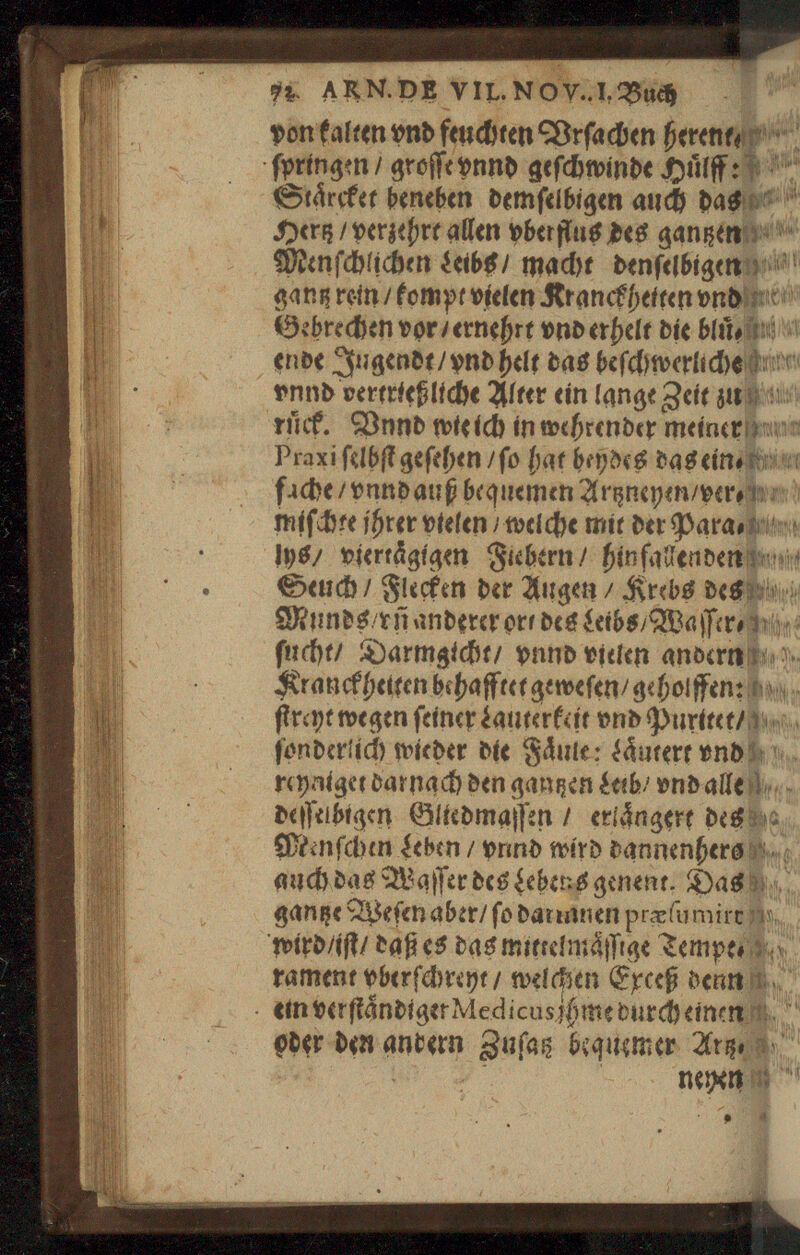 72. ARN. DE VIL. NOV.. I. Buch
von kalten vnd feuchten Vrſachen herent⸗
ſpringen / groſſe vnnd geſchwinde Huͤlff :
Staͤrcket beneben demſelbigen auch das
Hertz / verzehrt allen vberflus des gantzen
Menſchlichen Leibs / macht denſelbigen
gantz rein / kompt vielen Kranckheiten vnd
Gebrechen vor / ernehrt vnd erhelt die bluͤ⸗
ende Jugendt / vnd helt das beſchwerliche
vnnd vertrießliche Alter ein lange Zeit zu
ruͤck. Vnnd wie ich in wehrender meiner
Praxi ſelbſt geſehen / ſo hat beydes das ein⸗
fache / vnnd auß bequemen Artzneyen / ver⸗
miſchte jhrer vielen / welche mit der Para⸗
lys / viertaͤgigen Fiebern / hinfallenden
Seuch / Flecken der Augen / Krebs des
Munds / vñ anderer ort des Leibs / Waſſer⸗
ſucht / Darmgicht / vnnd vielen andern
Kranckheiten behafftet geweſen / geholffen:
ſtreyt wegen ſeiner Lauterkeit vnd Puritet /
ſonderlich wieder die Faͤule: Laͤutert vnd
reyniget darnach den gantzen Leib / vnd alle
deſſelbigen Gliedmaſſen / erlaͤngert des
Menſchen Leben / vnnd wird dannenhero
auch das Waſſer des Lebens genent. Das
gantze Weſen aber / ſo darinnen præſumirt
wird / iſt / daß es das mittelmaͤſſige Tempe⸗
rament vberſchreyt / welchen Exceß denn
ein verſtaͤndiger Medicus jhme durch einen
oder den andern Zuſatz bequemer Artz⸗
neyen